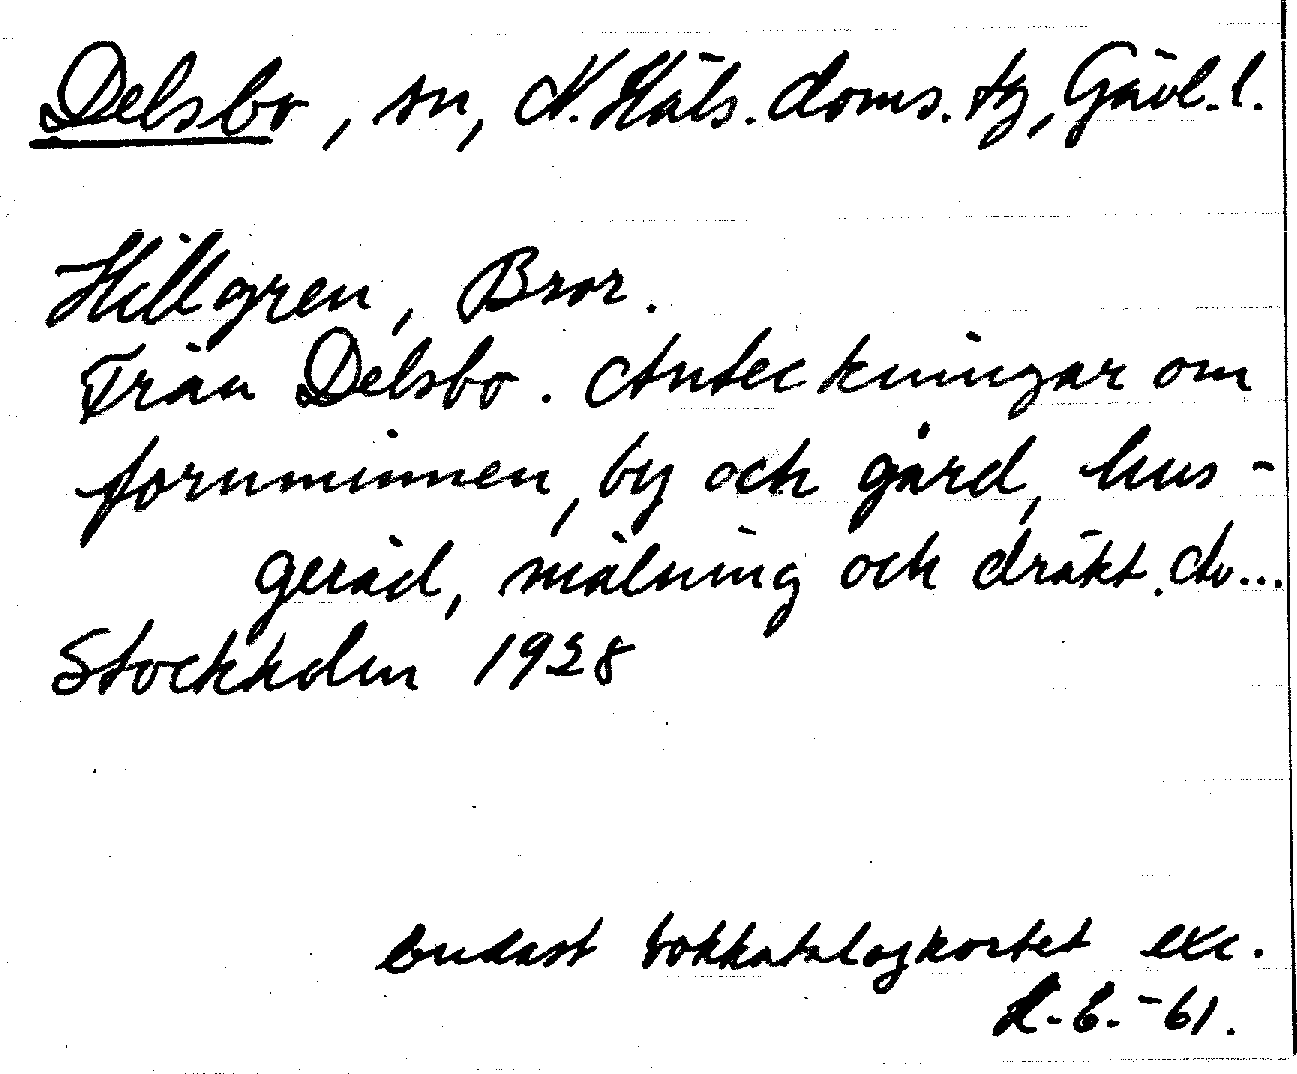 Delsbo, sn, N. Häls. doms. tg, Gävl. l.
Hillgren, Bror.
Från Delsbo. Anteckningar om
fornminnen, by och gård, hus-
geråd, målning och dräkt. Av...
Stockholm 1928
Endast bokkatalogkortet exc.
L.B. -61.